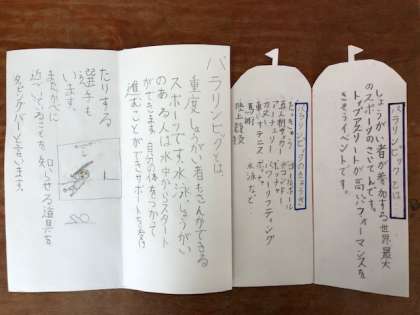 パラリンピックとは
しょうがい者が参加する世界最大
のスポーツのさいてんです。
トップアスリートが高いパフォーマンスを
きそうイベントです。
パラリンピックのきょうぎ
たっきゅう
ゴールボール
アーチェリー
カヌー
ボッチャ
車いすテニス
パワーリフティング
馬術
水泳など
陸上競技
パラリンピックとは、
重度しょうがい者もさんかできる
スポーツです。水泳、しょうがい
のある人は水中からスタート
ができます。自分の体をつかって
進むことができサポートを受け
たりする
選手も
います。
またかべに
近づいていることを知らせる道具を
タッピングバーと言います。